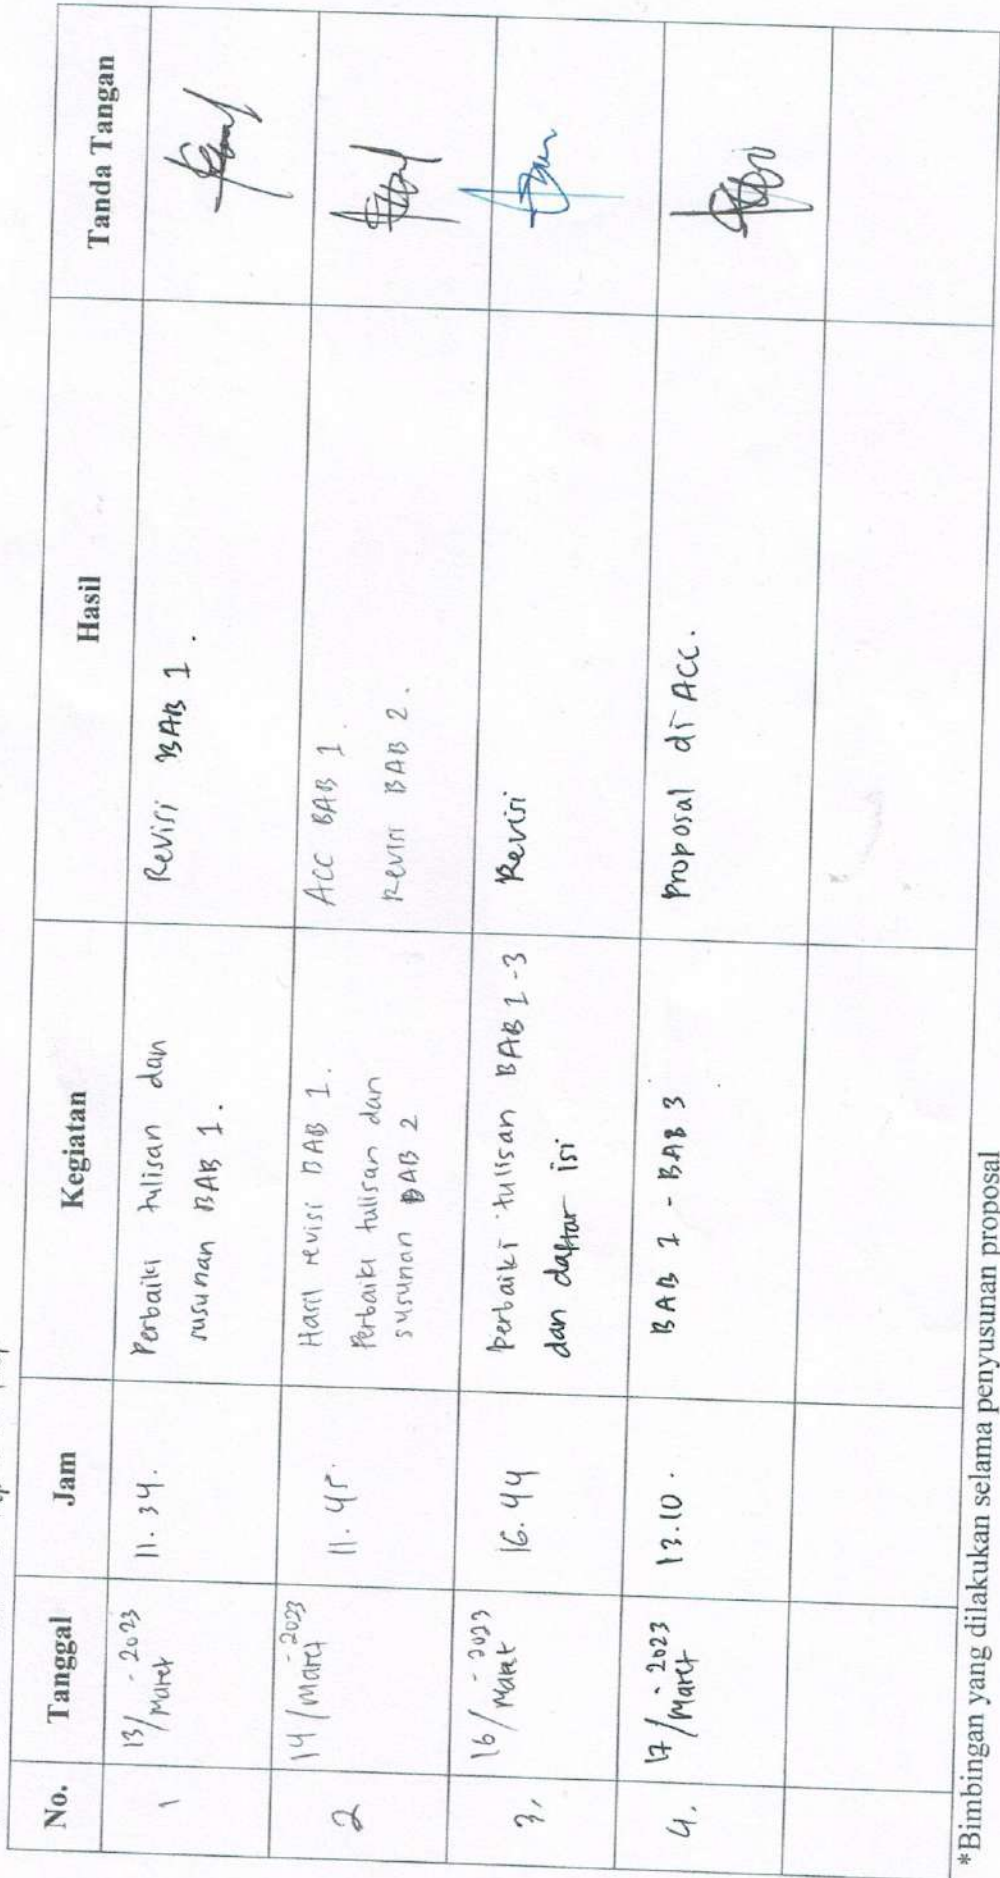 No. Tanggal Jam Kegiatan Hasil Tanda Tangan
1 13/Maret - 2023 11.34. Perbaiki tulisan dan Revisi BAB 1.
susunan BAB 1.
2 14/Maret - 2023 11.45. Hasil revisi BAB 1. ACC BAB 1.
Perbaiki tulisan dan Revisi BAB 2.
susunan BAB 2
3. 16/Maret - 2023 16.44 Perbaiki tulisan BAB 1-3 Revisi
dan daftar isi
4. 17/Maret - 2023 13.10. BAB 1 - BAB 3 Proposal di ACC.
*Bimbingan yang dilakukan selama penyusunan proposal